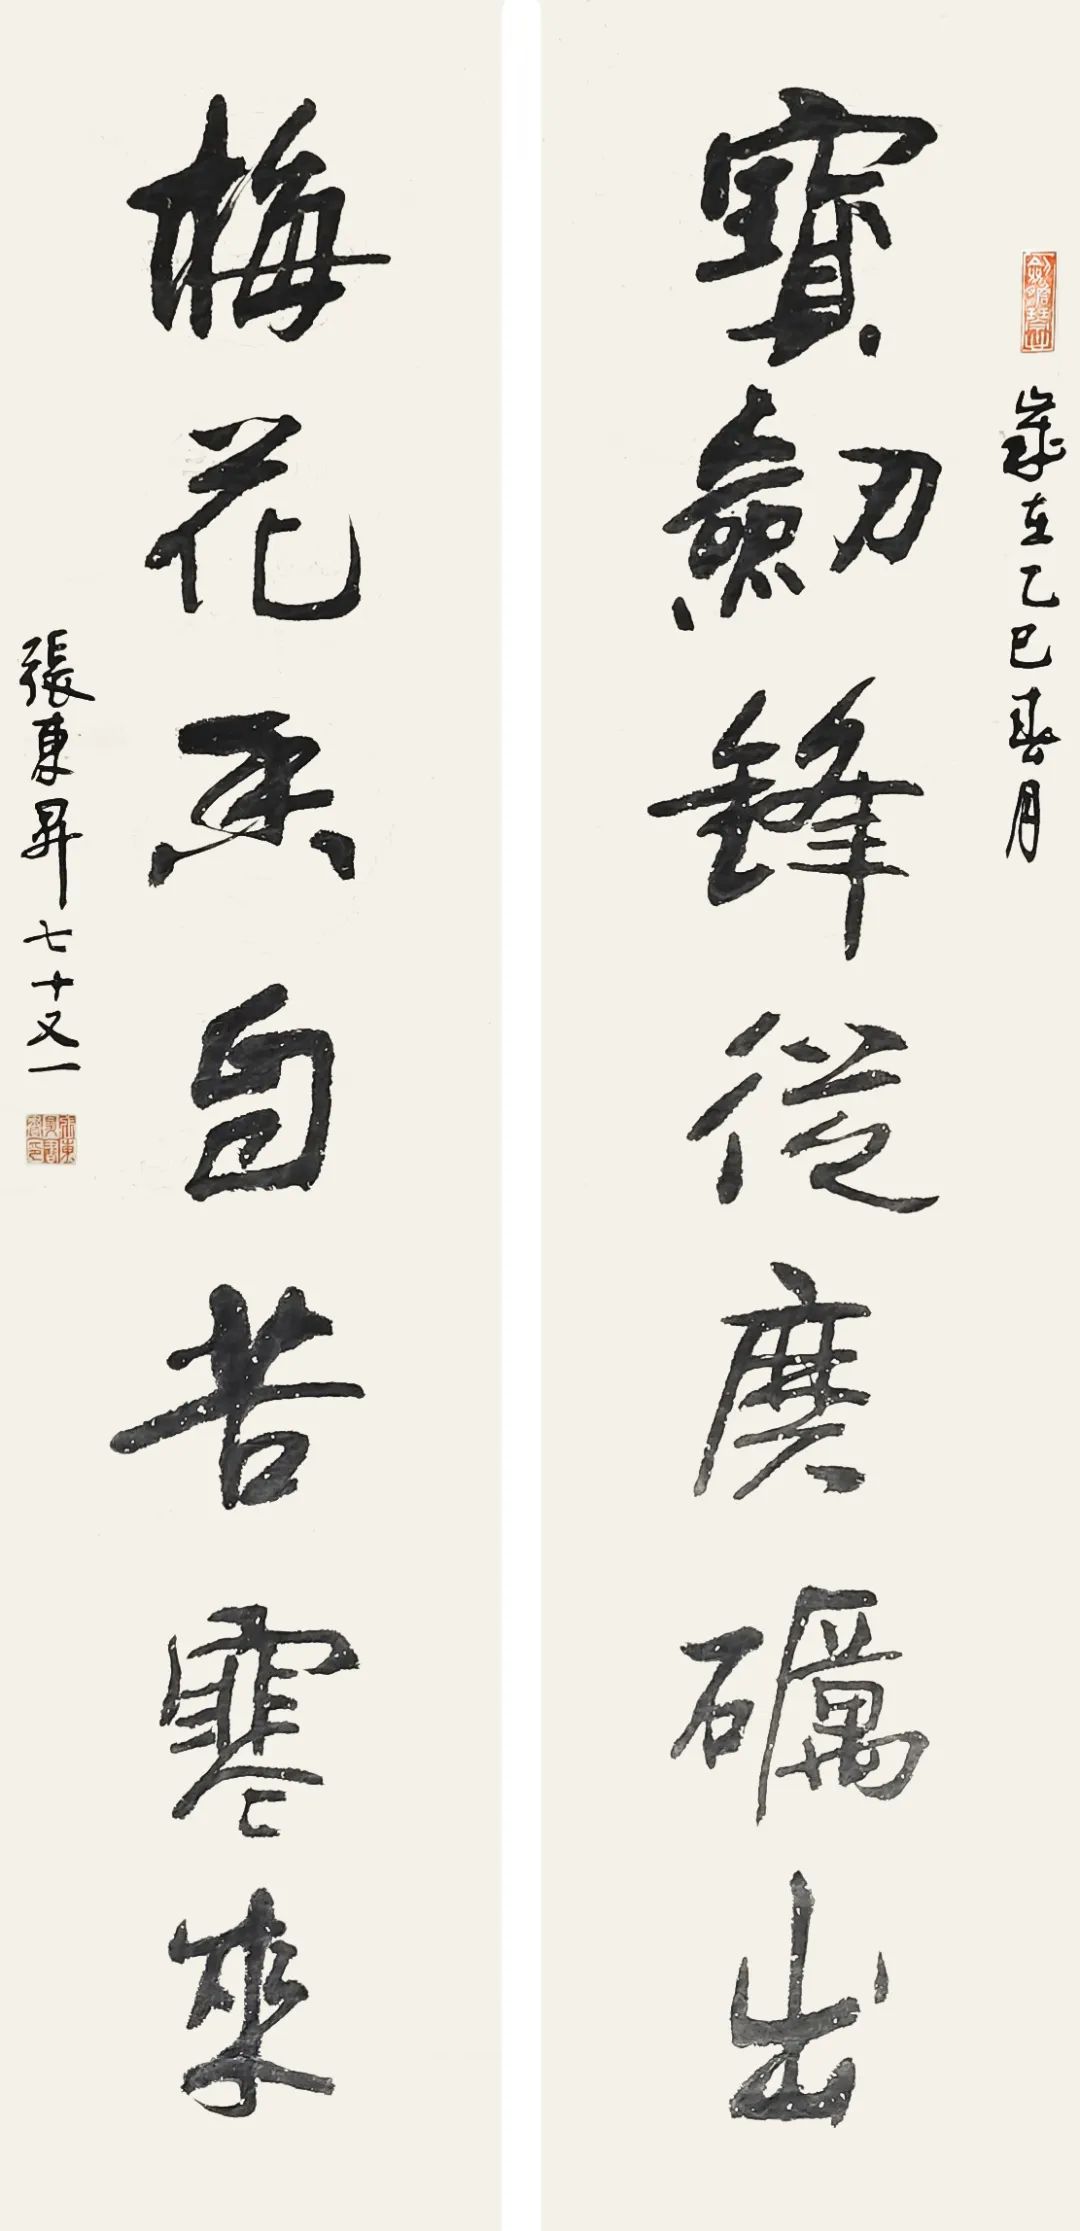 歲在乙巳春月
寶劒鋒從磨礪出
梅花香自苦寒來
張東昇七十又一